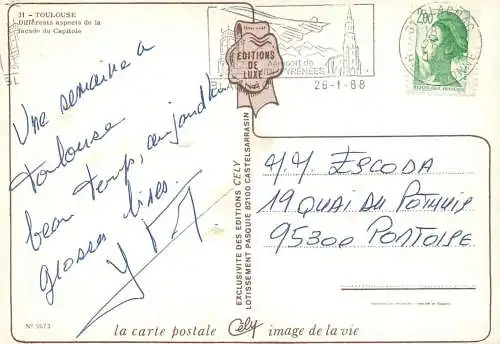 31 - TOULOUSE
Différents aspects de la
façade du Capitole
Une semaine à
Toulouse
beau temps, aujourd'hui
grosses bises.
EDITIONS
DE
LUXE
Aéroport de
PYRÉNÉES
BLAGNAC
26-1-88
2,00
BLAGNAC
EXCLUSIVITE DES EDITIONS CELY
LOTISSEMENT PASQUIE 82100 CASTELSARRASIN
M.M. ESCODA
19 QUAI DU POTHUIS
95300 PONTOISE
Nº 5673
la carte postale Cély image de la vie